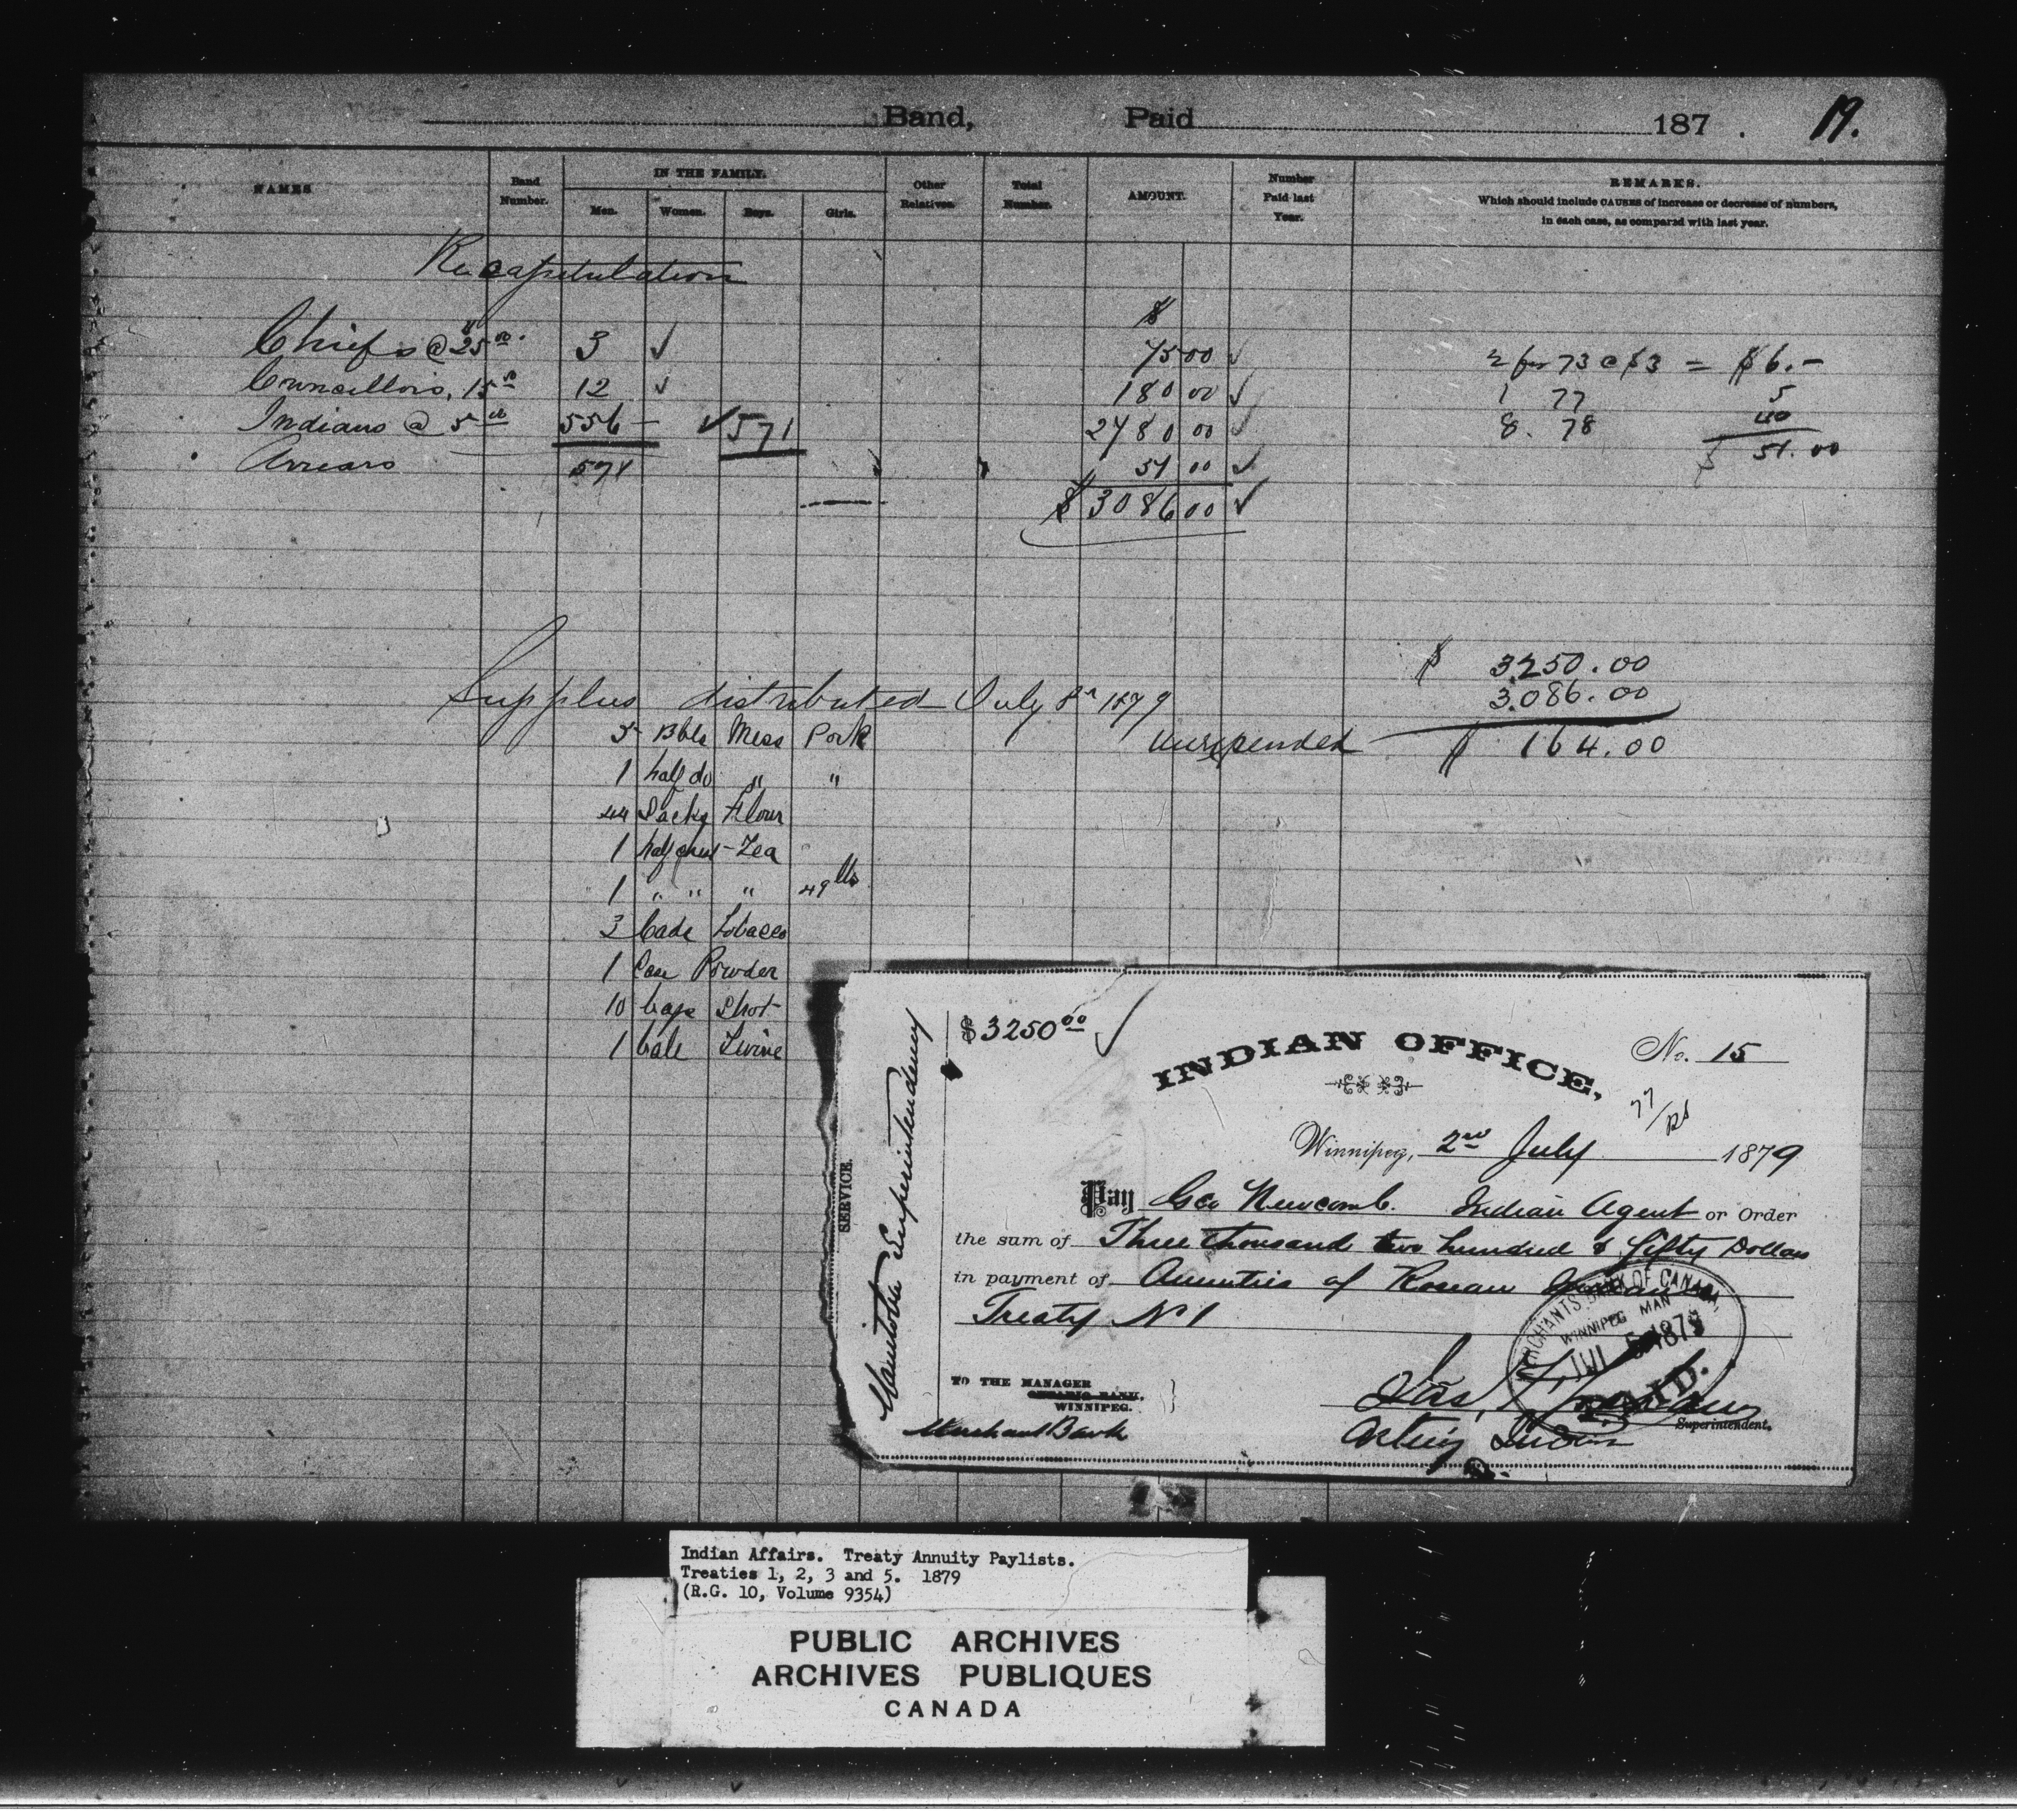 Band, Paid 187 . 19.
NAMES Band Number. IN THE FAMILY. Men. Women. Boys. Girls. Other Relatives. Total Number. AMOUNT. Number Paid last Year. REMARKS.
Which should include CAUSES of increase or decrease of numbers,
in each case, as compared with last year.
Recapitulation
$
Chiefs @ 25 00. 3 ✓ 75 00 ✓ 2 for 73 @ $3 = $6.-
Councillors, 15 12 ✓ 180 00 ✓ 1 77 5
Indians @ 5 00 556 - ✓ 571 2780 00 ✓ 8. 78 40
Arrears 571 51 00 ✓ $ 51.00
$ 3086 00 ✓
$ 3.250.00
Supplies distributed July 8th 1879 3.086.00
5 Bbls Mess Pork unexpended $ 164.00
1 half do " "
44 Sacks Flour
1 half chest Tea
1 " " " 49 lbs
3 Cade Tobacco
1 Can Powder
10 bags Shot
1 bale Twine
SERVICE.
Manitoba Superintendency
$3250 00 ✓
INDIAN OFFICE,
No. 15
Winnipeg, 2nd July 1879
Pay Geo Newcomb. Indian Agent or Order
the sum of Three thousand two hundred & fifty Dollars
in payment of Annuities of Roseau
Treaty No 1
MERCHANTS BANK OF CANADA,
WINNIPEG MAN
JUL 5 1879
PAID.
TO THE MANAGER
ONTARIO BANK,
WINNIPEG.
Merchant Bank
Jas. F. Graham
Superintendent.
Acting Indian
Indian Affairs. Treaty Annuity Paylists.
Treaties 1, 2, 3 and 5. 1879
(R.G. 10, Volume 9354)
PUBLIC ARCHIVES
ARCHIVES PUBLIQUES
CANADA